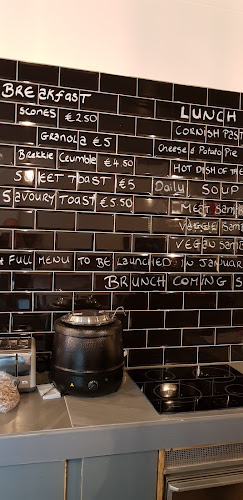 BREakfasT
SCONES €2.50
GRanola €5
Brekkie Crumble €4.50
SWEET TOAST €5
SAVOURY TOAST €5.50
LUNCH
CORNISH PAST
Cheese & Potato Pie
HOT DISH OF THE
Daily SOUP
MEAT SAM
VEGGIE SAM
VEGAN SAM
FULL MENU TO BE LAUNCHED IN JANUAR
BRUNCH COMING S